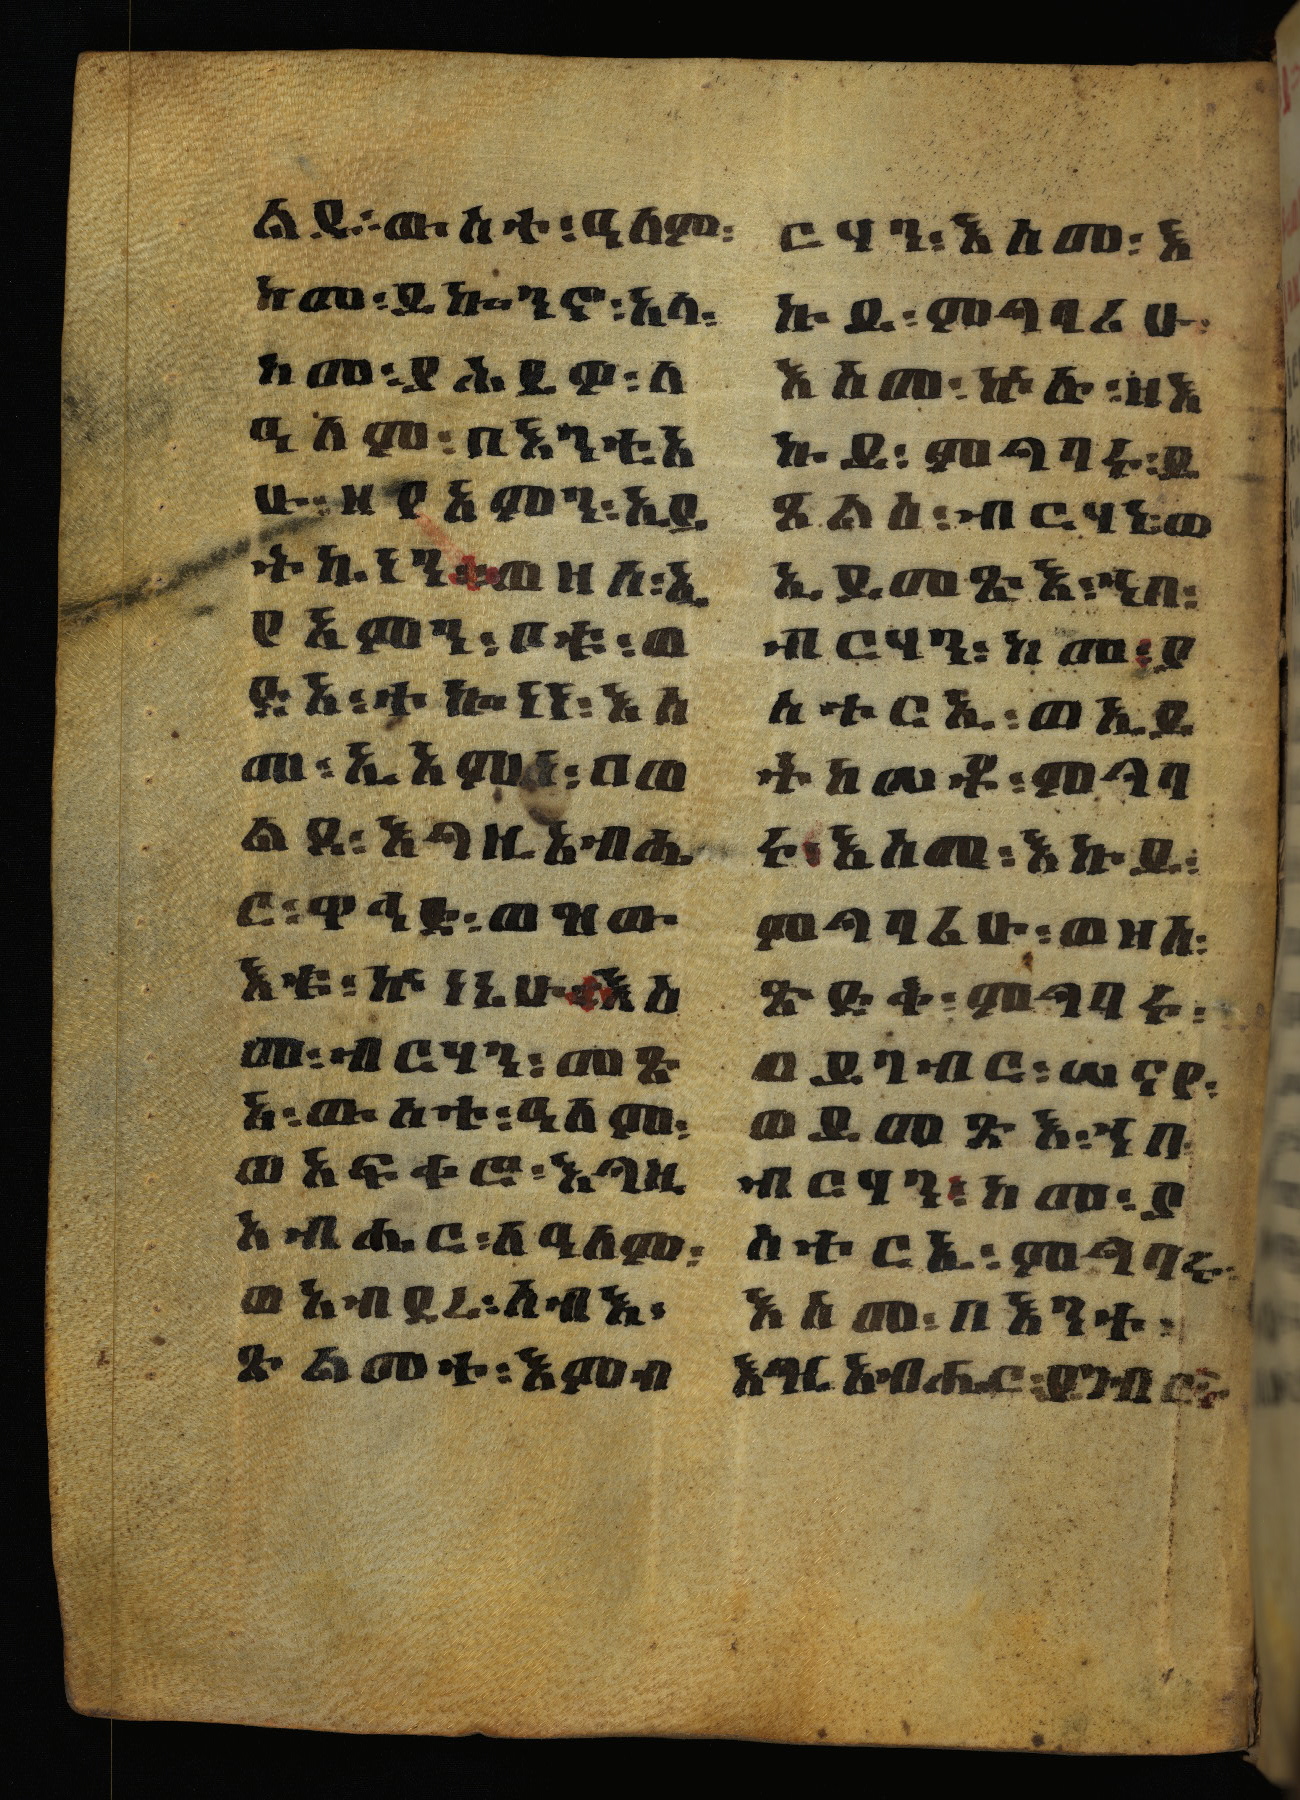 ልዱ፡ውስተ፡ዓለም፡
ከመ፡ይኰንኖ፡አላ፡
ከመ፡ያሕይዎ፡ለ
ዓለም፡በእንቲአ
ሁ፡ዘየአምን፡ኢይ
ትኴነን፡ወዘሰ፡ኢ
የአምን፡ቦቱ፡ወ
ድአ፡ተኰነነ፡እስ
መ፡ኢአምነ፡በወ
ልዱ፡እግዚአብሔ
ር፡ዋሕድ፡ወዝው
እቱ፡ኵነኔሁ፡እስ
መ፡ብርሃን፡መጽ
አ፡ውስተ፡ዓለም፡
ወአፍቀሮ፡እግዚ
አብሔር፡ለዓለም፡
ወአብደረ፡ሰብእ፡
ጽልመተ፡እምብ
ርሃን፡እስመ፡እ
ኩይ፡ምግባሩሁ፡
እስመ፡ኵሉ፡ዘእ
ኩይ፡ምግባሩ፡ይ
ጸልእ፡ብርሃነ፡ወ
ኢይመጽእ፡ኀበ፡
ብርሃን፡ከመ፡ኢያ
ስተርኢ፡ወኢይ
ትከሠቶ፡ምግባ
ሩ፡እስመ፡እኩይ፡
ምግባሪሁ፡ወዘሰ፡
ጽድቀ፡ምግባሩ፡
ወይገብር፡ሠናየ፡
ወይመጽእ፡ኀበ፡
ብርሃን፡ከመ፡ያ
ስተርኢ፡ምግባሩ፡
እስመ፡በእንተ፡
እግዚአብሔር፡ይገብር፡